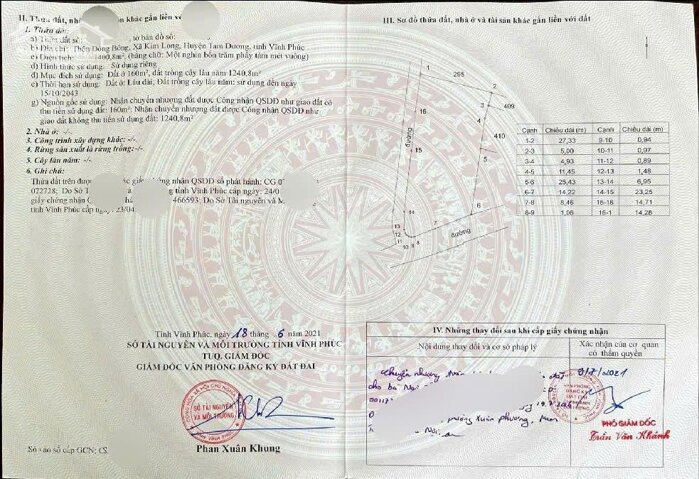 II. Thửa đất, nhà ở và tài sản khác gắn liền với đất
1. Thửa đất:
a) Thửa đất số: tờ bản đồ số:
b) Địa chỉ: Thôn Đồng Bông, Xã Kim Long, Huyện Tam Dương, tỉnh Vĩnh Phúc
c) Diện tích: 1400,8m², (bằng chữ: Một nghìn bốn trăm phẩy tám mét vuông)
d) Hình thức sử dụng: Sử dụng riêng
đ) Mục đích sử dụng: Đất ở 160m², đất trồng cây lâu năm 1240,8m²
e) Thời hạn sử dụng: Đất ở: Lâu dài; Đất trồng cây lâu năm: sử dụng đến ngày
15/10/2043
g) Nguồn gốc sử dụng: Nhận chuyển nhượng đất được Công nhận QSDĐ như giao đất có
thu tiền sử dụng đất: 160m²; Nhận chuyển nhượng đất được Công nhận QSDĐ như
giao đất không thu tiền sử dụng đất: 1240,8m²
2. Nhà ở: -/-
3. Công trình xây dựng khác: -/-
4. Rừng sản xuất là rừng trồng: -/-
5. Cây lâu năm: -/-
6. Ghi chú:
Thửa đất trên được giấy chứng nhận QSDĐ số phát hành: CG
022728; Do Sở Tài tỉnh Vĩnh Phúc cấp ngày
giấy chứng nhận 466593; Do Sở Tài nguyên và M
tỉnh Vĩnh Phúc cấp ngày 23/04
Tỉnh Vĩnh Phúc, ngày 18 tháng 6 năm 2021
SỞ TÀI NGUYÊN VÀ MÔI TRƯỜNG TỈNH VĨNH PHÚC
TUQ. GIÁM ĐỐC
GIÁM ĐỐC VĂN PHÒNG ĐĂNG KÝ ĐẤT ĐAI
SỞ TÀI NGUYÊN
VÀ MÔI TRƯỜNG
Phan Xuân Khung
Số vào sổ cấp GCN: CS
III. Sơ đồ thửa đất, nhà ở và tài sản khác gắn liền với đất
1
295
2
16
3
409
4
15
410
đường
5
14
6
13
12
11
10
9
8
7
đường
Cạnh Chiều dài (m) Cạnh Chiều dài (m)
1-2 27,33 9-10 0,94
2-3 5,00 10-11 0,97
3-4 4,93 11-12 0,89
4-5 11,45 12-13 1,48
5-6 25,43 13-14 6,95
6-7 14,22 14-15 23,25
7-8 8,46 15-16 14,71
8-9 1,06 16-1 14,28
IV. Những thay đổi sau khi cấp giấy chứng nhận
Nội dung thay đổi và cơ sở pháp lý
Xác nhận của cơ quan
có thẩm quyền
Chuyển nhượng
cho bà
0011
Xuân Phương,
PHÓ GIÁM ĐỐC
Trần Văn Khánh